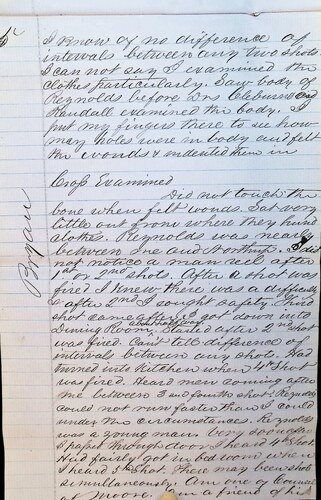 I know of no difference of
intervals between any two shots
I can not say I examined the
clothes particularly. Saw body of
Reynolds before Drs Cleburne and
Randall examined the body. I
put my fingers there to see how
many holes were in body and felt
the wounds & indented them in
Cross Examined
Did not touch the
bone when felt wounds. Sat very
little out from where they hung
clothes. Reynolds was nearly
between me and Northup. I did
not notice a man reel after
1st or 2nd shots. After a shot was
fired I knew there was a difficulty
& after 2nd I sought safety. Third
shot came after I got down into
Dining Room about half way. Started after 2nd shot
was fired. Can't tell difference of
intervals between any shot. Had
turned into Kitchen when 4th shot
was fired. Heard men coming after
me between 3 and fourth shot. Reynolds
could not run faster than I could
under the circumstances. Reynolds
was a young man
I passed through door I heard 4th shot
Had fairly got in bed room when
I heard 5th Shot. There may been shots
simultaneously. Am one of Council
at Moore. Am a friend of
Bryan